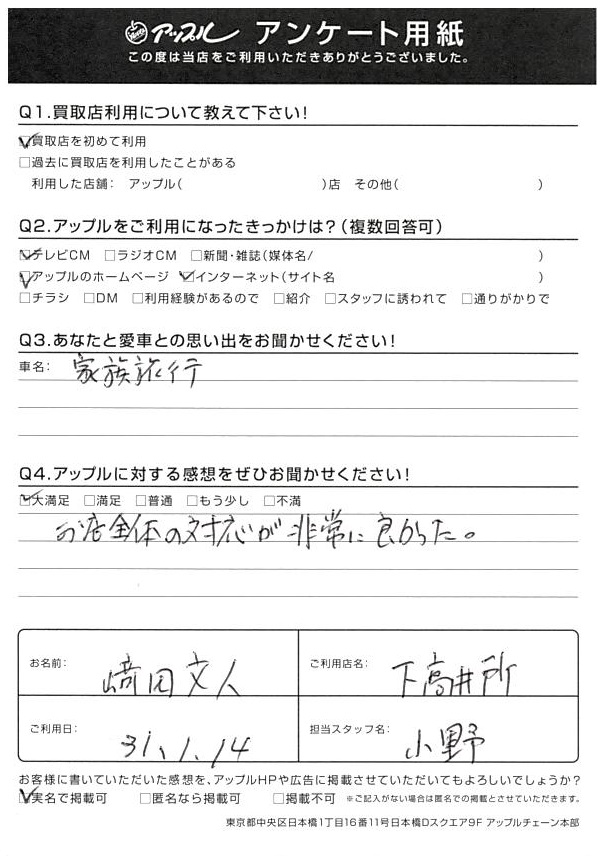 アップル アンケート用紙
この度は当店をご利用いただきありがとうございました。
Q1.買取店利用について教えて下さい!
☑買取店を初めて利用
□過去に買取店を利用したことがある
利用した店舗: アップル( )店 その他( )
Q2.アップルをご利用になったきっかけは?(複数回答可)
☑テレビCM □ラジオCM □新聞・雑誌(媒体名/ )
☑アップルのホームページ ☑インターネット(サイト名 )
□チラシ □DM □利用経験があるので □紹介 □スタッフに誘われて □通りがかりで
Q3.あなたと愛車との思い出をお聞かせください!
車名: 家族旅行
Q4.アップルに対する感想をぜひお聞かせください!
☑大満足 □満足 □普通 □もう少し □不満
お店全体の対応が非常に良かった。
お名前: 﨑田文人 ご利用店名: 下高井所
ご利用日: 31.1.14 担当スタッフ名: 小野
お客様に書いていただいた感想を、アップルHPや広告に掲載させていただいてもよろしいでしょうか?
☑実名で掲載可 □匿名なら掲載可 □掲載不可 ※ご記入がない場合は匿名での掲載とさせていただきます。
東京都中央区日本橋1丁目16番11号日本橋Dスクエア9F アップルチェーン本部